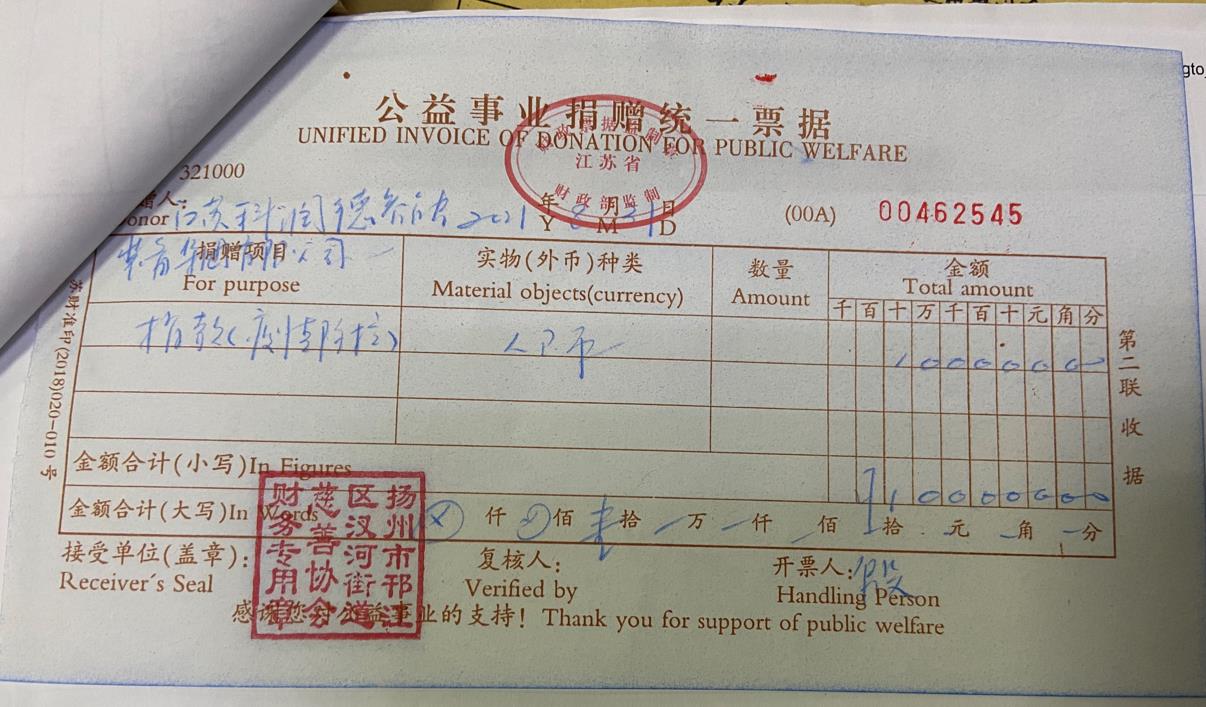 gto
公益事业捐赠统一票据
UNIFIED INVOICE OF DONATION FOR PUBLIC WELFARE
财政票据监制章
江苏省
财政部监制
321000
赠人:
onor 江苏科润德 2021 年 8 月 31 日
Y M D
(00A) 00462545
装备集团有限公司
捐赠项目
For purpose
实物(外币)种类
Material objects(currency)
数量
Amount
金额
Total amount
千 百 十 万 千 百 十 元 角 分
捐款(疫情防控)
人民币
1 0 0 0 0 0 0 0
金额合计(小写)In Figures
¥ 1 0 0 0 0 0 0 0
金额合计(大写)In Words ⊗ 仟 佰 壹 拾 万 仟 佰 拾 元 角 分
接受单位(盖章):
Receiver's Seal
复核人:
Verified by
开票人: 殷
Handling Person
感谢您对公益事业的支持! Thank you for support of public welfare
扬州市邗江
区汊河街道
慈善协会
财务专用章
苏财准印(2018)020-010号
第二联 收据